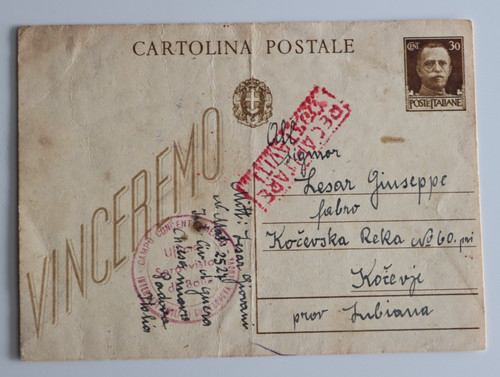 CARTOLINA POSTALE
CENT. 30
POSTE ITALIANE
VINCEREMO
All
Signor
Lesar Giuseppe
fabro
Kočevska Reka No 60. pri
Kočevje
prov Lubiana
Mitt. Lesar Giovani
2524
Int. Civ. di guerra
Chiesanuova
Padova
Italia
CAMPO CONCENTR